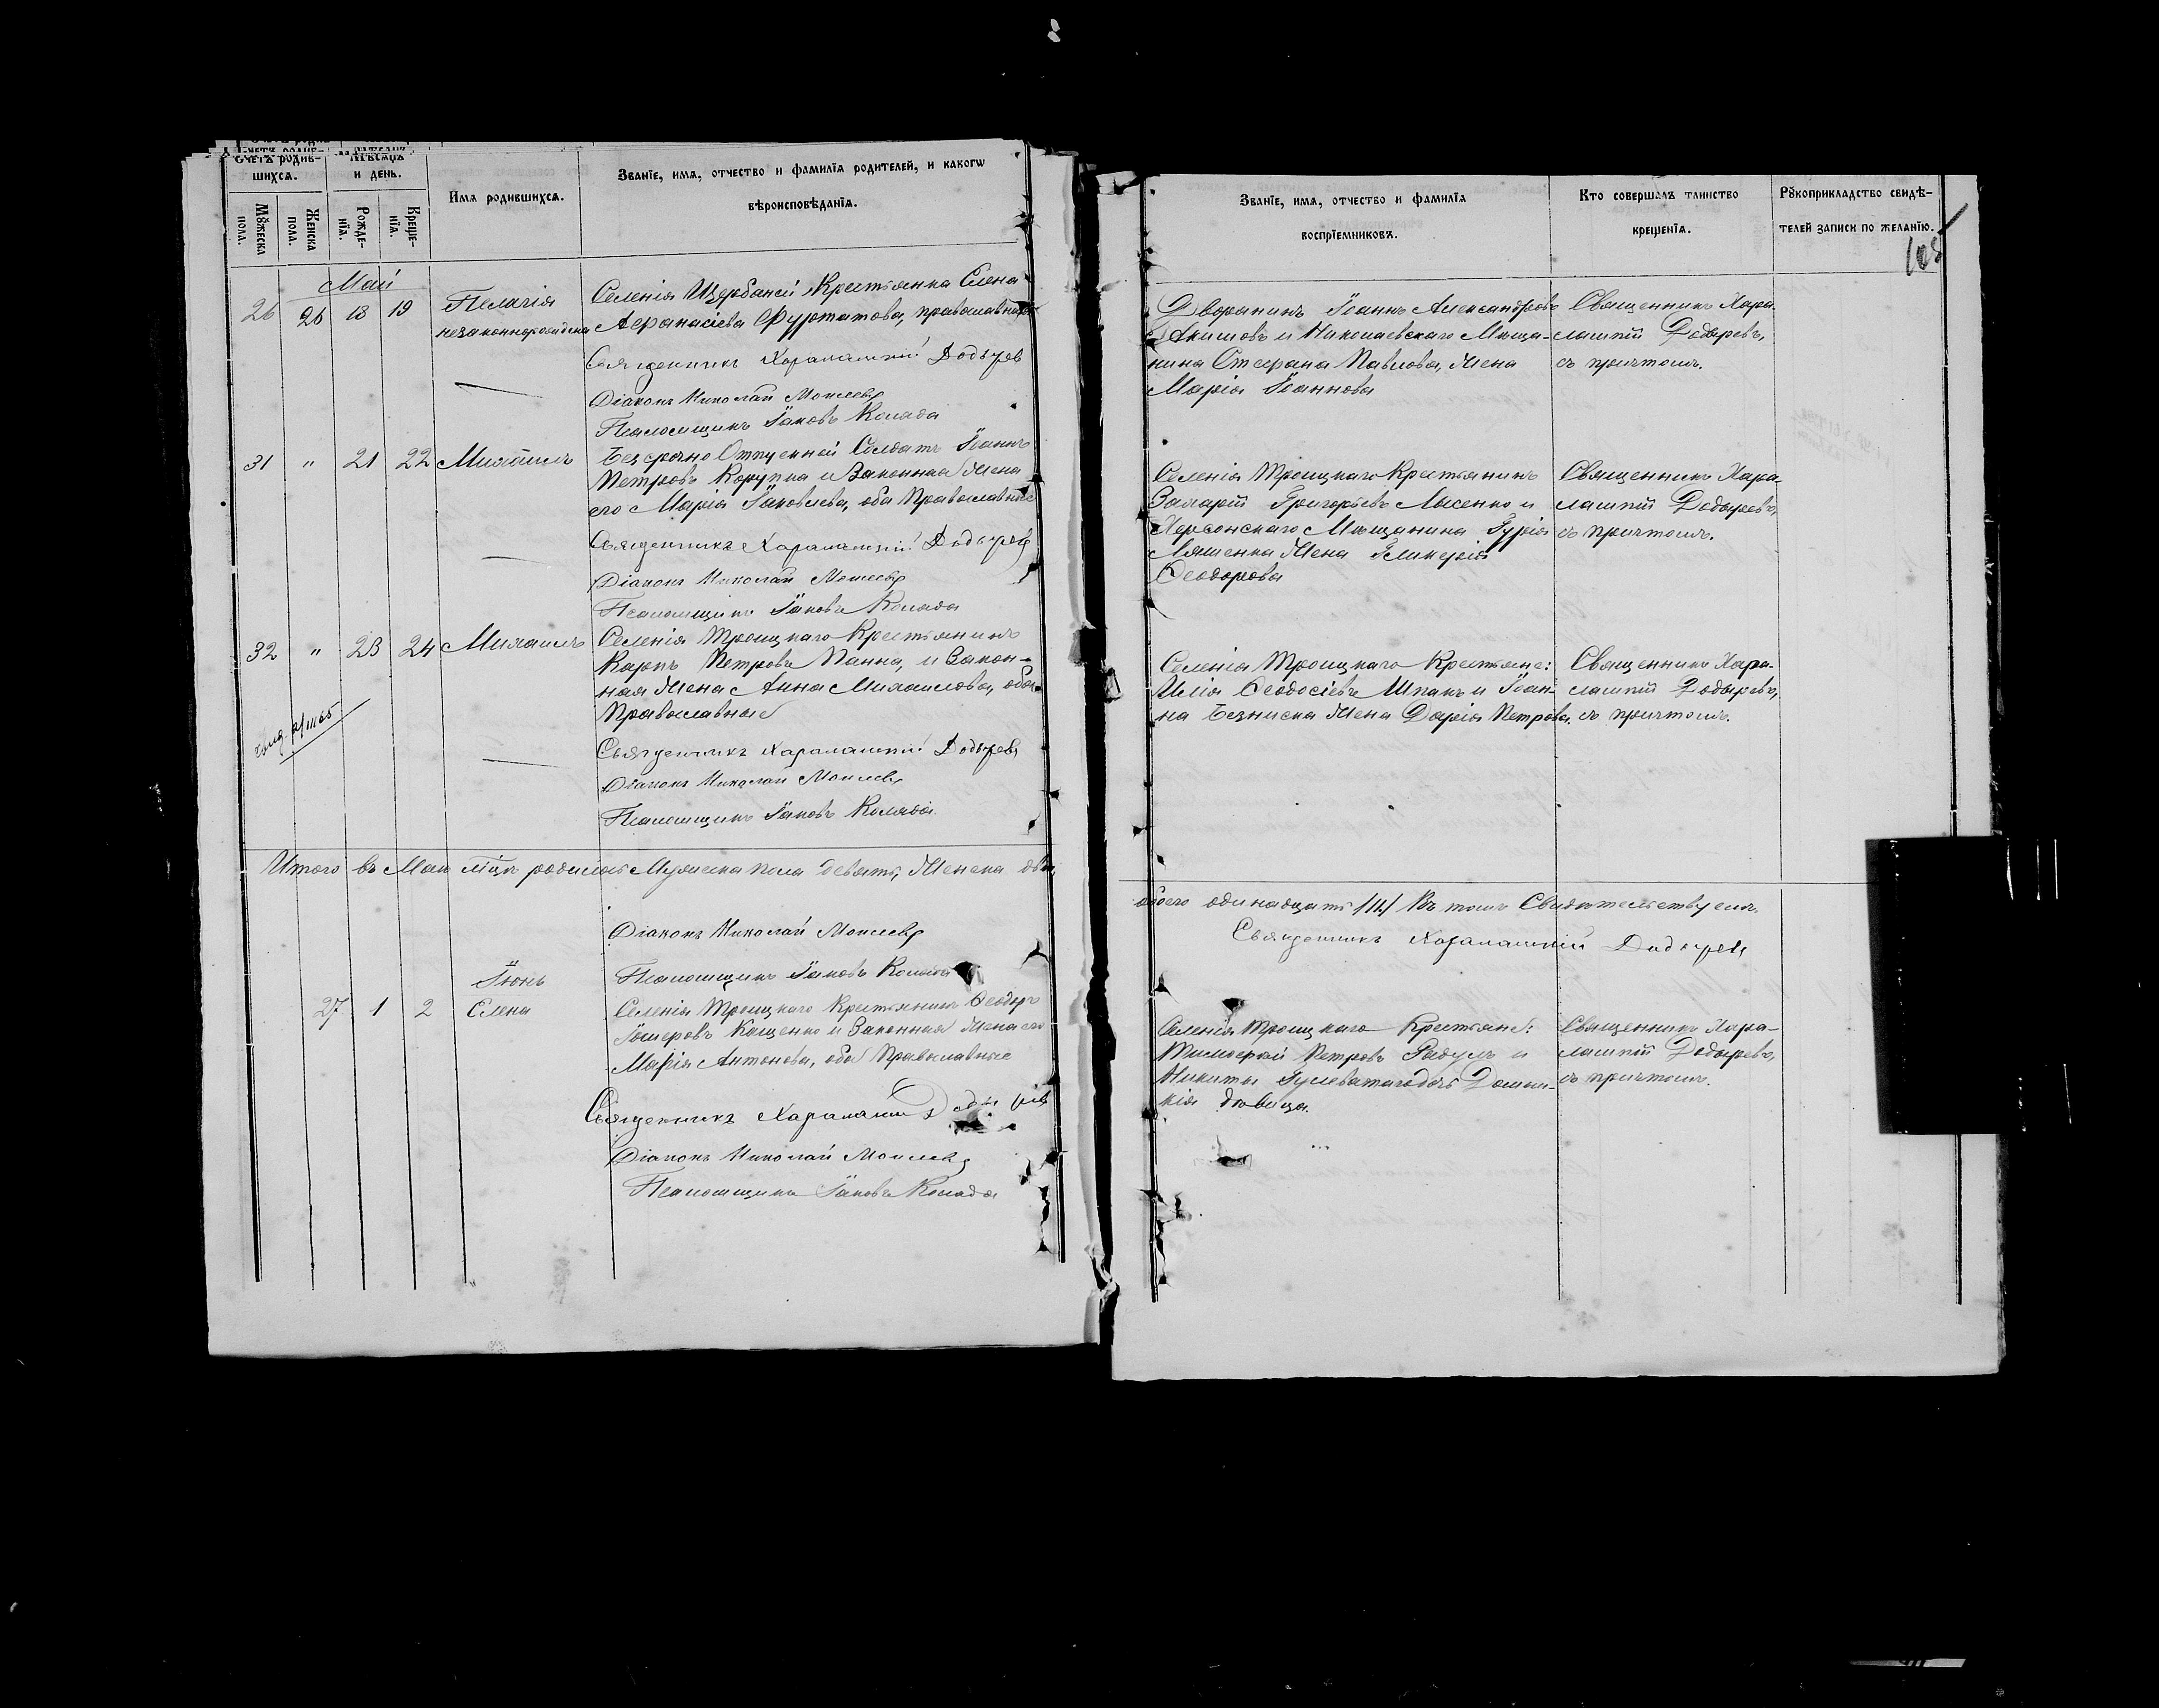 Счетъ родив-
шихся.
Мѣсяцъ
и день.
Мꙋжеска
пола.
Женска
пола.
Рожде-
нїя.
Креще-
нїя.
Имя родившихся.
Званїе, имя, отчество и фамилїя родителей, и какогѡ
вѣроисповѣданїя.
Май
26 26 18 19 Пелагія
незаконнорожденна
Селенія Щербаней Крестьянка Елена
Афанасіева Фуртатова, православная
Священникъ Харалампій Додыревъ
Діаконъ Николай Моисеевъ
Псаломщикъ Іаковъ Коляда
31 " 21 22 Михаилъ
Безсрочно Отпускной Солдатъ Іоаннъ
Петровъ Корупка и Законная Жена
его Марія Іаковлева, оба Православные
Священникъ Харалампій Додыревъ
Діаконъ Николай Моисеевъ
Псаломщикъ Іаковъ Коляда
32 " 23 24 Михаилъ
Селенія Троицкаго Крестьянинъ
Карпъ Петровъ Панна, и Закон-
ная Жена Анна Михаилова, оба
Православные
Священникъ Харалампій Додыревъ
Діаконъ Николай Моисеевъ
Псаломщикъ Іаковъ Коляда
Итого въ Маѣ мѣцѣ родилось Мужеска пола девять, Женска два,
Діаконъ Николай Моисеевъ
Псаломщикъ Іаковъ Коляда
Іюнь
27 1 2 Елена
Селенія Троицкаго Крестьянинъ Ѳеодоръ
Кащенко и Законная Жена его
Марія Антонова, оба Православные
Священникъ Харалампій
Діаконъ Николай Моисеевъ
Псаломщикъ Іаковъ Коляда
Званїе, имя, отчество и фамилїя
воспрїемниковъ.
Кто совершалъ таинство
крещенїя.
Рꙋкоприкладство свидѣ-
телей записи по желанїю.
Дворянинъ Іоаннъ Александровъ
Акимовъ и Николаевскаго Мѣща-
нина Стефана Павлова, Жена
Марія Іоаннова
Священникъ Хара-
лампій Додыревъ,
съ причтомъ.
Селенія Троицкаго Крестьянинъ
Захарій Григорьевъ Лысенко и
Херсонскаго Мѣщанина Гурія
Ляшенка Жена Гликерія
Ѳеодорова
Священникъ Хара-
лампій Додыревъ,
съ причтомъ.
Селенія Троицкаго Крестьяне:
Илія Ѳеодосіевъ Шпакъ и Іоан-
на Безниска Жена Дарія Петрова.
Священникъ Хара-
лампій Додыревъ,
съ причтомъ.
обоего одинадцать /11/ Въ томъ Свидѣтельствуемъ.
Священникъ Харалампій Додыревъ
Селенія Троицкаго Крестьяне:
Тимофей Петровъ Радулъ и
Никиты Гулеватаго дочь Домни-
кія дѣвица.
Священникъ Хара-
лампій Додыревъ,
съ причтомъ.